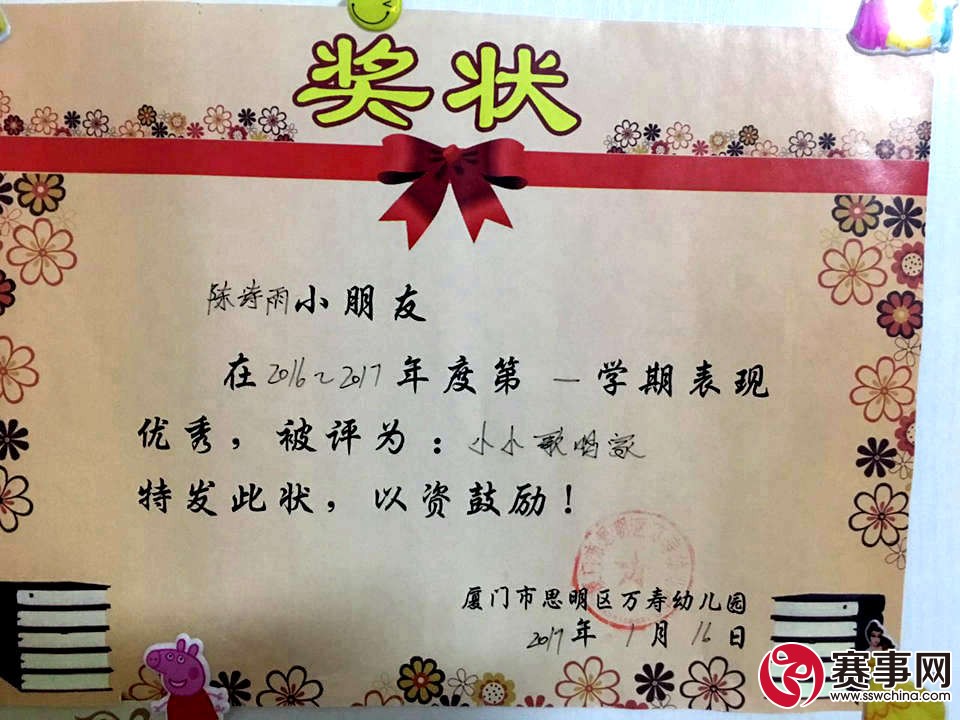 奖状
陈诗雨小朋友
在2016~2017年度第一学期表现
优秀，被评为：小小歌唱家
特发此状，以资鼓励！
厦门市思明区万寿幼儿园
2017年1月16日
赛事网
www.sswchina.com